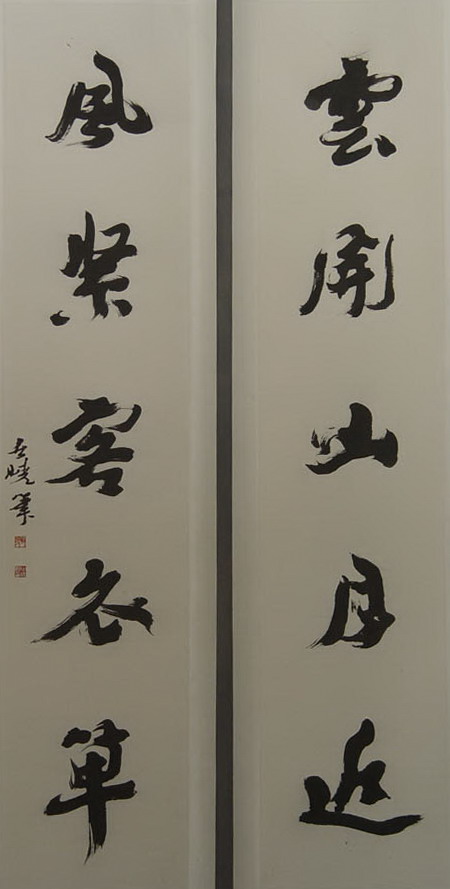 雲開山月近
風緊客衣單
曉筆